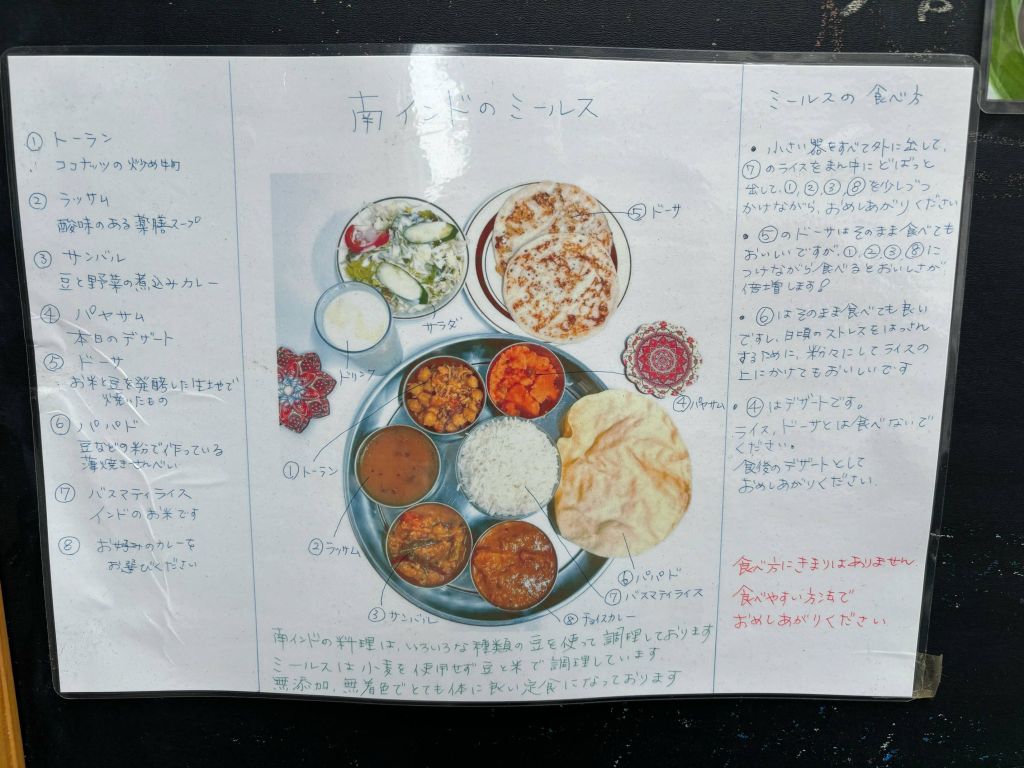 南インドのミールス
① トーラン
ココナッツの炒め物
② ラッサム
酸味のある薬膳スープ
③ サンバル
豆と野菜の煮込みカレー
④ パヤサム
本日のデザート
⑤ ドーサ
お米と豆を発酵した生地で
焼いたもの
⑥ パパド
豆などの粉で作っている
薄焼きせんべい
⑦ バスマティライス
インドのお米です
⑧ お好みのカレーを
お選びください
⑤ドーサ
サラダ
ドリンク
④パヤサム
①トーラン
②ラッサム
⑥パパド
⑦バスマティライス
③サンバル
⑧チョイスカレー
南インドの料理は、いろいろな種類の豆を使って調理しております
ミールスは小麦を使用せず豆と米で調理しています.
無添加、無着色でとても体に良い定食になっております
ミールスの 食べ方
• 小さい器をすべて外に出して、
⑦のライスをまん中にどばっと
出して、①,②,③,⑧を少しづつ
かけながら、おめしあがりください
• ⑤のドーサはそのまま食べても
おいしいですが、①,②,③,⑧に
つけながら食べるとおいしさが
倍増します!
• ⑥はそのまま食べても良い
ですし、日頃のストレスをはっさん
するために、粉々にしてライスの
上にかけてもおいしいです
• ④はデザートです。
ライス、ドーサとは食べないで
ください。
食後のデザートとして
おめしあがりください.
食べ方にきまりはありません
食べやすい方法で
おめしあがりください